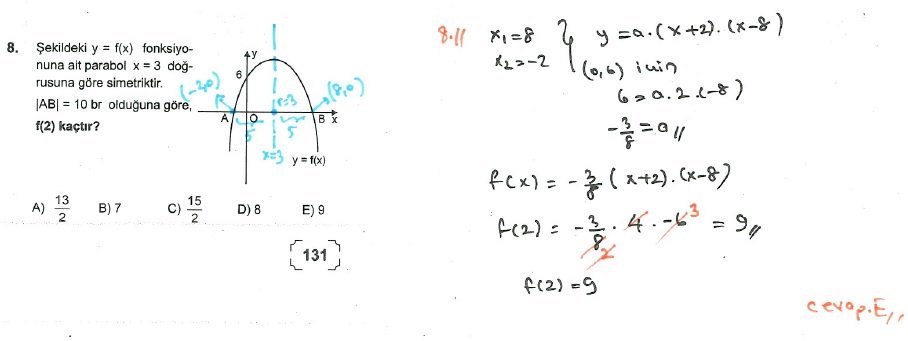 8. Şekildeki y = f(x) fonksiyo-
nuna ait parabol x = 3 doğ-
rusuna göre simetriktir.
|AB| = 10 br olduğuna göre,
f(2) kaçtır?
y
6
(-2,0)
r=3
(8,0)
A
O
B
x
5
5
x=3
y = f(x)
A) 13/2 B) 7 C) 15/2 D) 8 E) 9
131
8.//
x₁=8
x₂=-2
y=a.(x+2).(x-8)
(0,6) için
6=a.2.(-8)
-3/8=a//
f(x) = -3/8 (x+2).(x-8)
f(2) = -3/8 . 4 . -6 3 = 9//
2
f(2)=9
cevap.E//